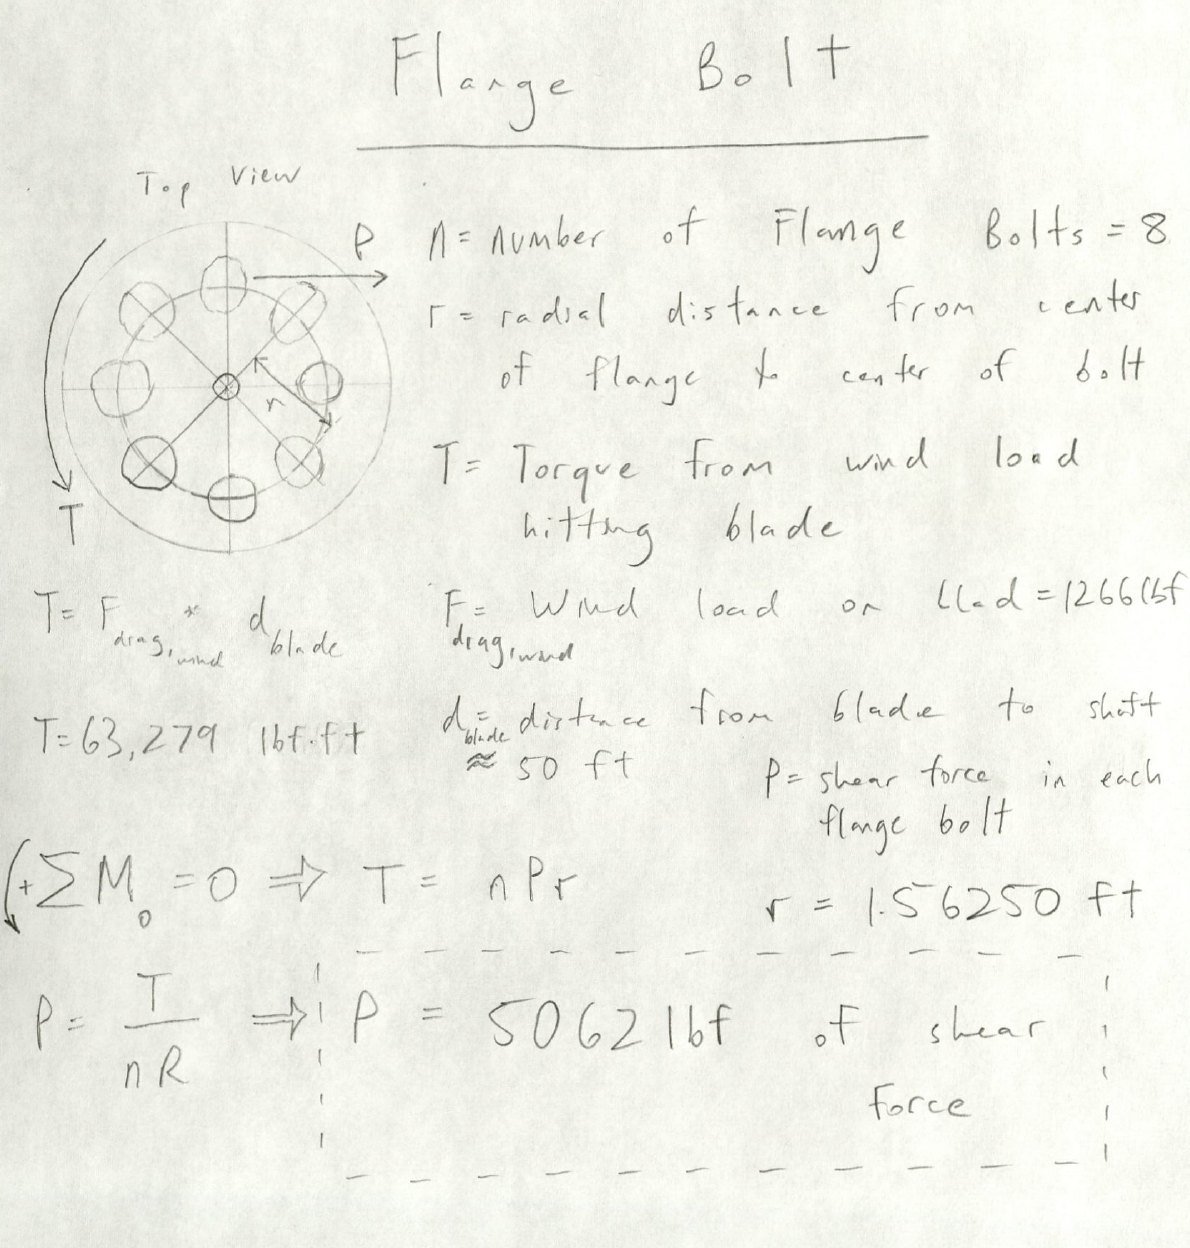 Flange Bolt
Top View
P
r
T
n = number of Flange Bolts = 8
r = radial distance from center
of flange to center of bolt
T = Torque from wind load
hitting blade
T = F drag, wind * d blade
F drag, wind = Wind load on = 1266 lbf
T = 63,279 lbf·ft
d blade = distance from blade to shaft
≈ 50 ft
P = shear force in each
flange bolt
+ ΣM₀ = 0 ⇒ T = nPr
r = 1.56250 ft
P = T / nR ⇒ P = 5062 lbf of shear
force